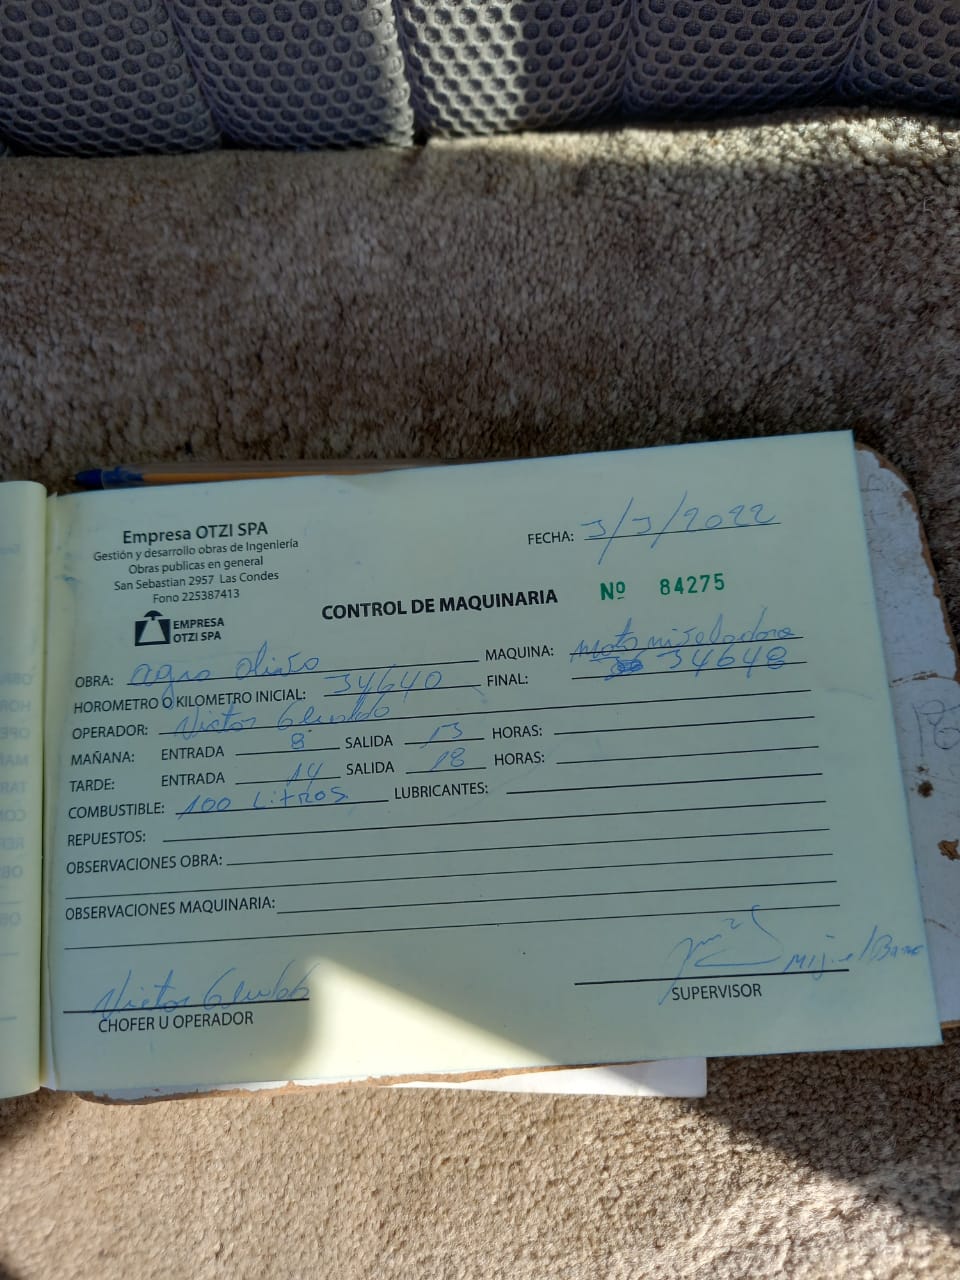 Empresa OTZI SPA
Gestión y desarrollo obras de Ingeniería
Obras publicas en general
San Sebastian 2957 Las Condes
Fono 225387413
EMPRESA
OTZI SPA
FECHA: 3/3/2022
CONTROL DE MAQUINARIA Nº 84275
OBRA: agro olivo MAQUINA: motoniveladora
HOROMETRO O KILOMETRO INICIAL: 34640 FINAL: 34648
OPERADOR: Victor
MAÑANA: ENTRADA 8 SALIDA 13 HORAS:
TARDE: ENTRADA 14 SALIDA 18 HORAS:
COMBUSTIBLE: 100 Litros LUBRICANTES:
REPUESTOS:
OBSERVACIONES OBRA:
OBSERVACIONES MAQUINARIA:
Victor
CHOFER U OPERADOR
Miguel
SUPERVISOR